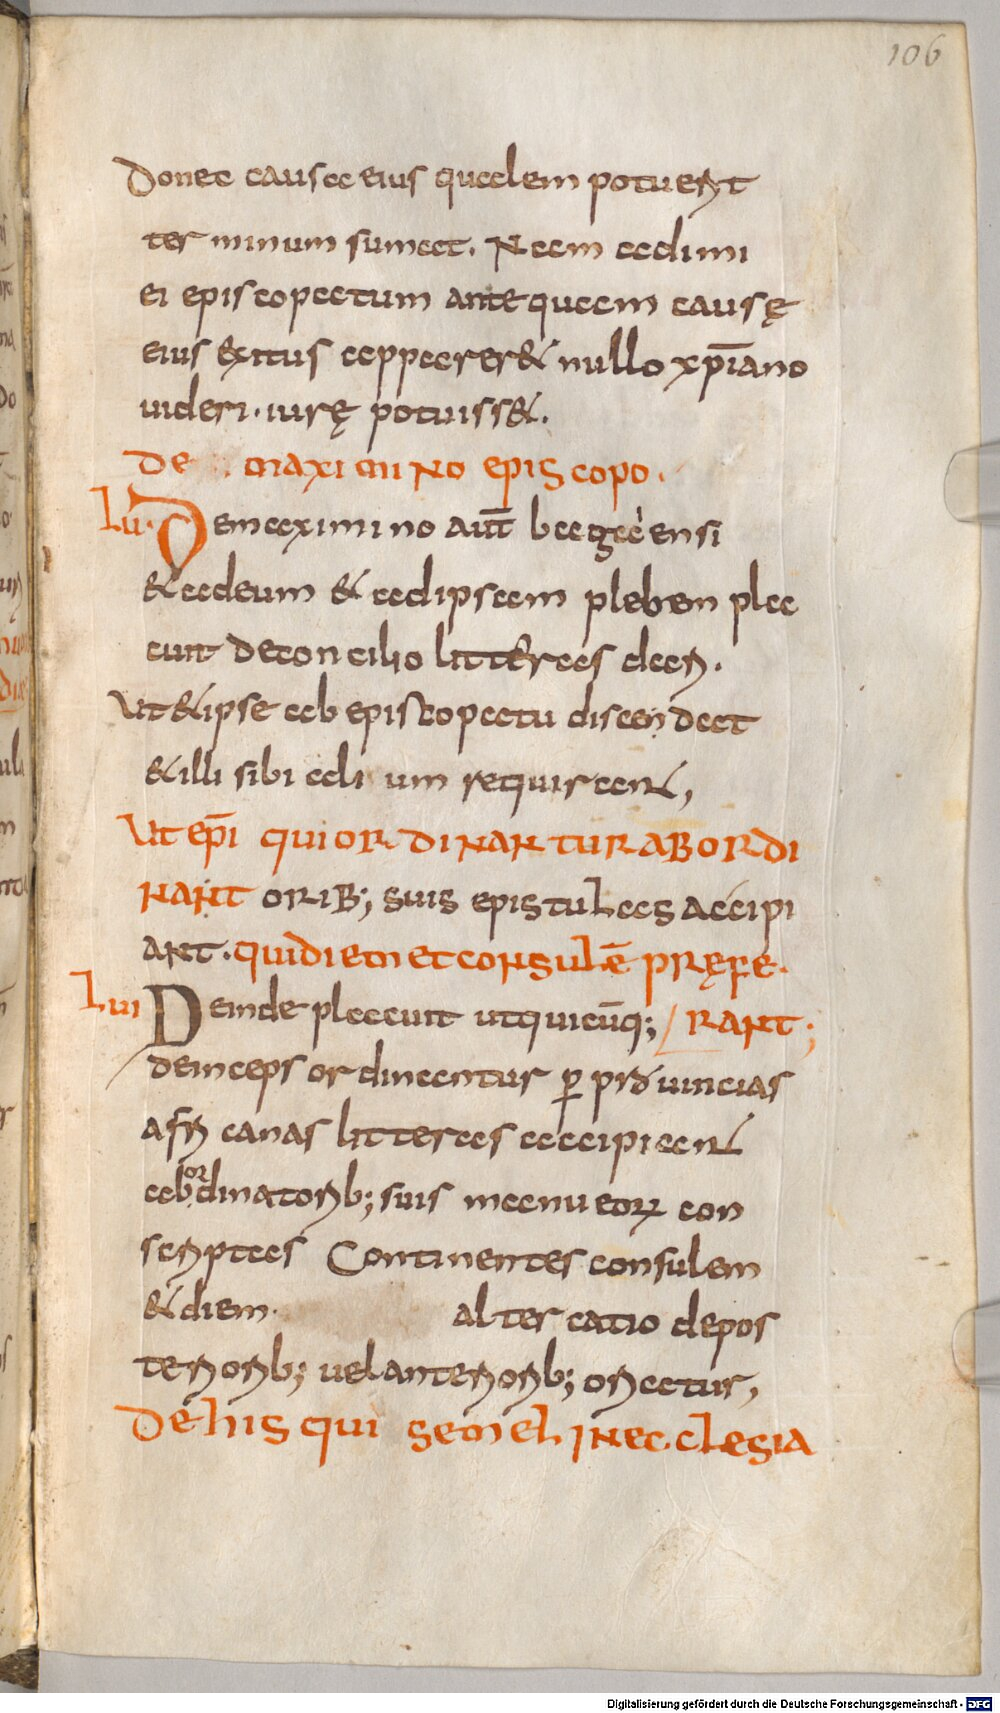 106
Donec causa eius qualem potuerit
terminum sumat. Nam adimi
ei episcopatum antequam causę
eius exitus appareret nullo xp̄iano
uideri. iurę potuisset.
De maximino episcopo.
Lu. Demaximino aut̄ bagaiensi
& adeum & adipsam plebem pla
cuit deconcilio litteras dari.
Ut & ipse ab episcopatu discendat
& illi sibi alium requirant,
Ut ep̄i qui ordinantur abordi
nantorib; suis epistulas accipi
ant. quidiem et consulē pręfe
Lui Deinde placuit utquicūq; / rant;
deinceps ordinantur ꝑ prouincias
africanas litteras accipiant
ab ordinatorib; suis manu eoꝝ con
scriptas Continentes consulem
& diem. altercatio depos
teriorib; uel anteriorib; oriatur,
De his qui semel in ecclesia
Digitalisierung gefördert durch die Deutsche Forschungsgemeinschaft - DFG